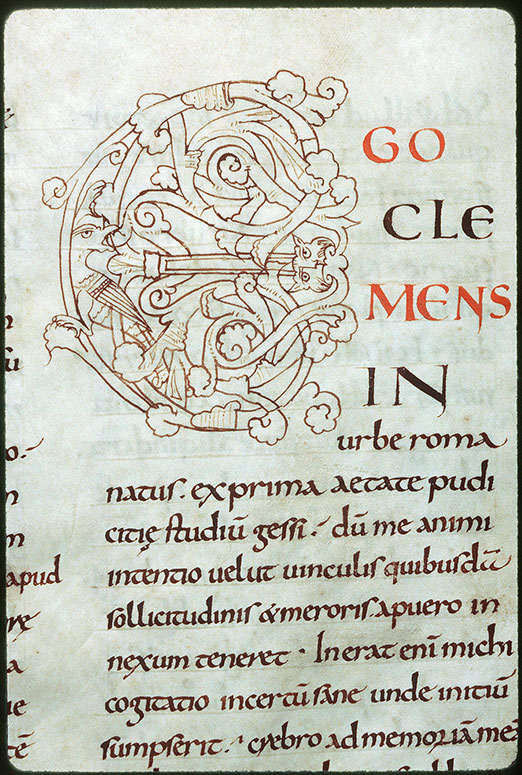 EGO
CLE
MENS
IN
urbe roma
natus. ex prima aetate pudi
citię studiū gessi. dū me animi
intentio uelut uinculis quibusdā
sollicitudinis & meroris a puero in
nexum teneret. Inerat enī michi
cogitatio incertū sane unde initiū
sumpserit. crębro ad memoriam meā
su
o.
n
m
apud
rę
a
ue
tē